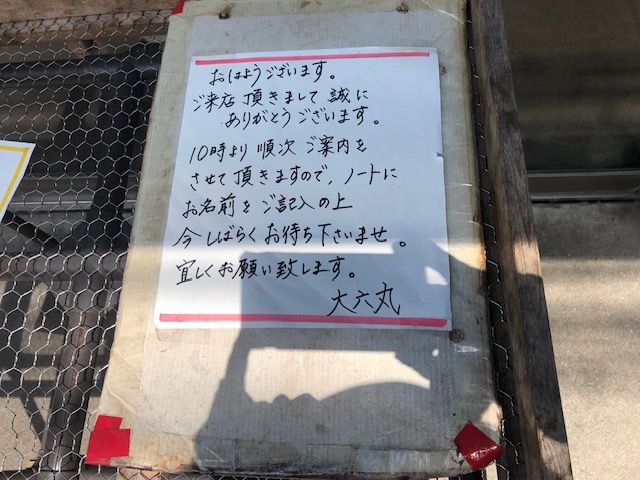 おはようございます。
ご来店頂きまして誠に
ありがとうございます。
10時より順次ご案内を
させて頂きますので、ノートに
お名前をご記入の上
今しばらくお待ち下さいませ。
宜しくお願い致します。
大六丸